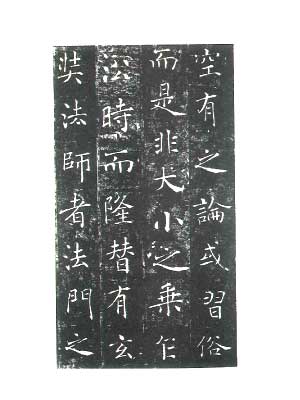 空有之論或習俗
而是非大小之乘乍
沿時而隆替有玄
奘法師者法門之